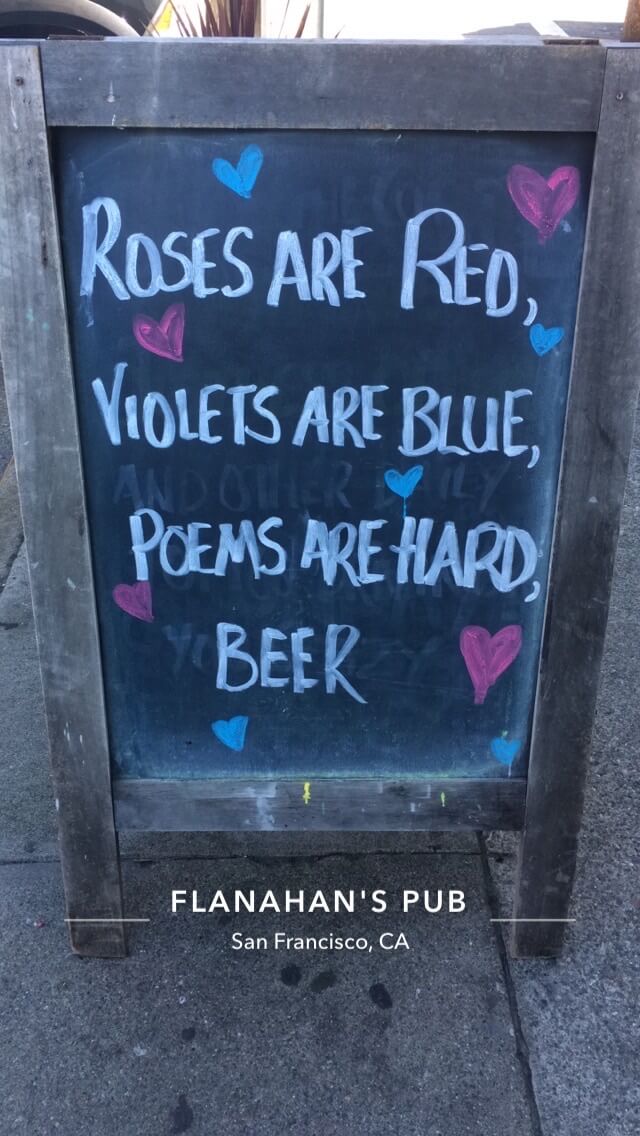 ROSES ARE RED,
VIOLETS ARE BLUE,
POEMS ARE HARD,
BEER
FLANAHAN'S PUB
San Francisco, CA